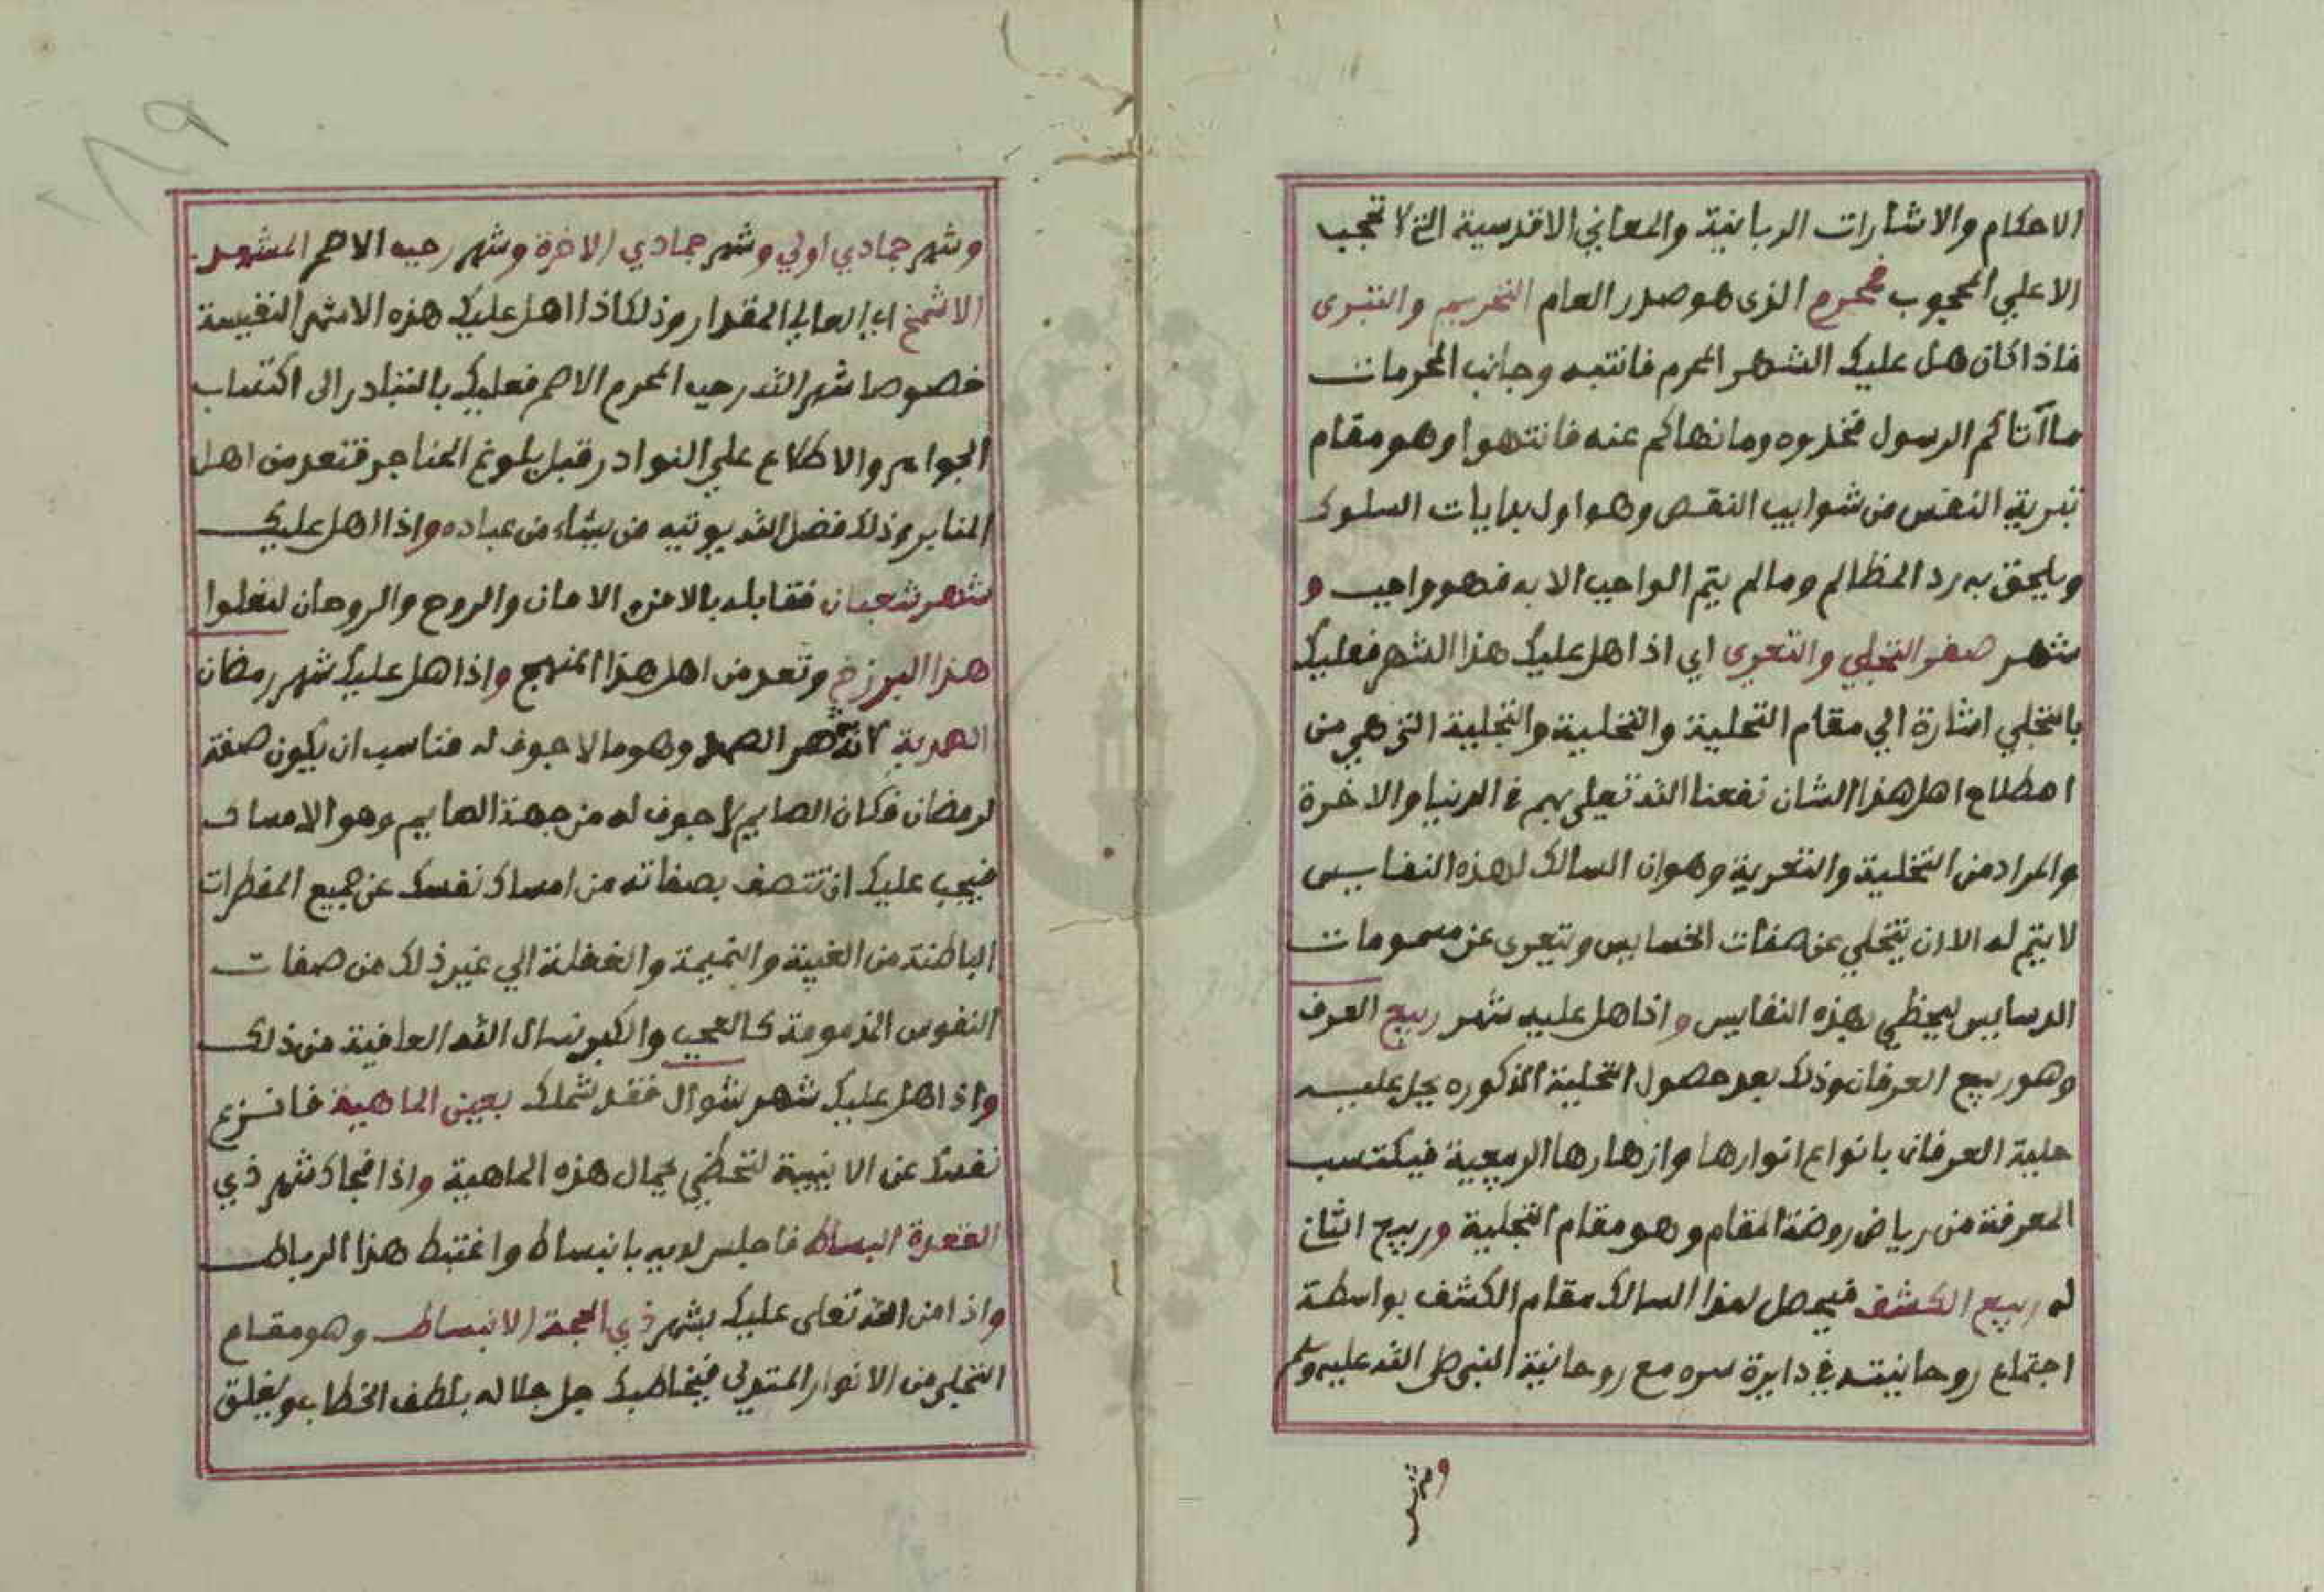 الاحكام والاشارات الربانية والمعاني الاقدسية التي لا تحجب
الا علي المحجوب فمحرم الذى هو صدر العام التحريم والتبرى
فاذا كان هل عليك الشهر المحرم فانتبه وجانب المحرمات
ما آتاكم الرسول فخذوه وما نهاكم عنه فانتهوا وهو مقام
تبرية النفس من شوايب النقص وهو اول بدايات السلوك
ويلحق به رد المظالم وما لم يتم الواجب الا به فهو واجب و
شهر صفر التخلي والتعرى اي اذا هل عليك هذا الشهر فعليك
بالتخلي اشارة الي مقام التحلية والتخلية والتجلية التي هي من
اصطلاح اهل هذا الشان نفعنا الله تعلى بهم في الدنيا والاخرة
والمراد من التخلية والتعرية وهو ان السالك لهذه النفايس
لا يتم له الا ان يتخلي عن صفات الخسايس ويتعرى عن مسمومات
الدسايس ليحظي بهذه النفايس واذا هل عليه شهر ربيع العرف
وهو ربيع العرفان وذلك بعد حصول التخلية المذكوره يحل عليه
حلية العرفان بانواع انوارها وازهارها الربيعية فيكتسب
المعرفة من رياض روضة المقام وهو مقام التحلية وربيع الثان
له ربيع الكشف فيحصل لهذا السالك مقام الكشف بواسطة
اجتماع روحانيته في دايرة سره مع روحانية النبي صلى الله عليه وسلم
وشهر
١٨٩
وشهر جمادي اولي وشهر جمادي الاخرة وشهر رجب الاصم المشهر
الاشمخ اي العالي المقدار وذلك اذا اهل عليك هذه الاشهر النفيسة
خصوصا شهر الله رجب المحرم الاصم فعليك بالتبادر الى اكتساب
الجواهر والاطلاع علي النوادر قبل بلوغ الحناجر فتعد من اهل
المنابر وذلك فضل الله يوتيه من يشاء من عباده واذا اهل عليك
شهر شعبان فقابله بالامن والامان والروح والروحان لتعلوا
هذا البرزخ وتعد من اهل هذا المنهج واذا هل عليك شهر رمضان
الصمدية لانه شهر الصمد وهو ما لا جوف له فناسب ان يكون صفة
لرمضان فكان الصايم لا جوف له من جهة الصايم وهو الامساك
فيجب عليك ان تتصف بصفاته من امساك نفسك عن جميع المفطرات
الباطنة من الغيبة والنميمة والغفلة الي غير ذلك من صفات
النفوس المذمومة كالعجب والكبر نسال الله العافية من ذلك
واذا هل عليك شهر شوال فقد شملك بعين الماهية فانزع
نفسك عن الانيية لتحظي بجمال هذه الماهية واذا فجاك شهر ذي
القعدة البساط فاجلس لديه بانبساط واغتبط هذا الرباط
واذا من الله تعلى عليك بشهر ذي الحجة الانبساط وهو مقام
التجلي من الانوار المتدلى فيخاطبك جل جلاله بلطف الخطاب ويغلق